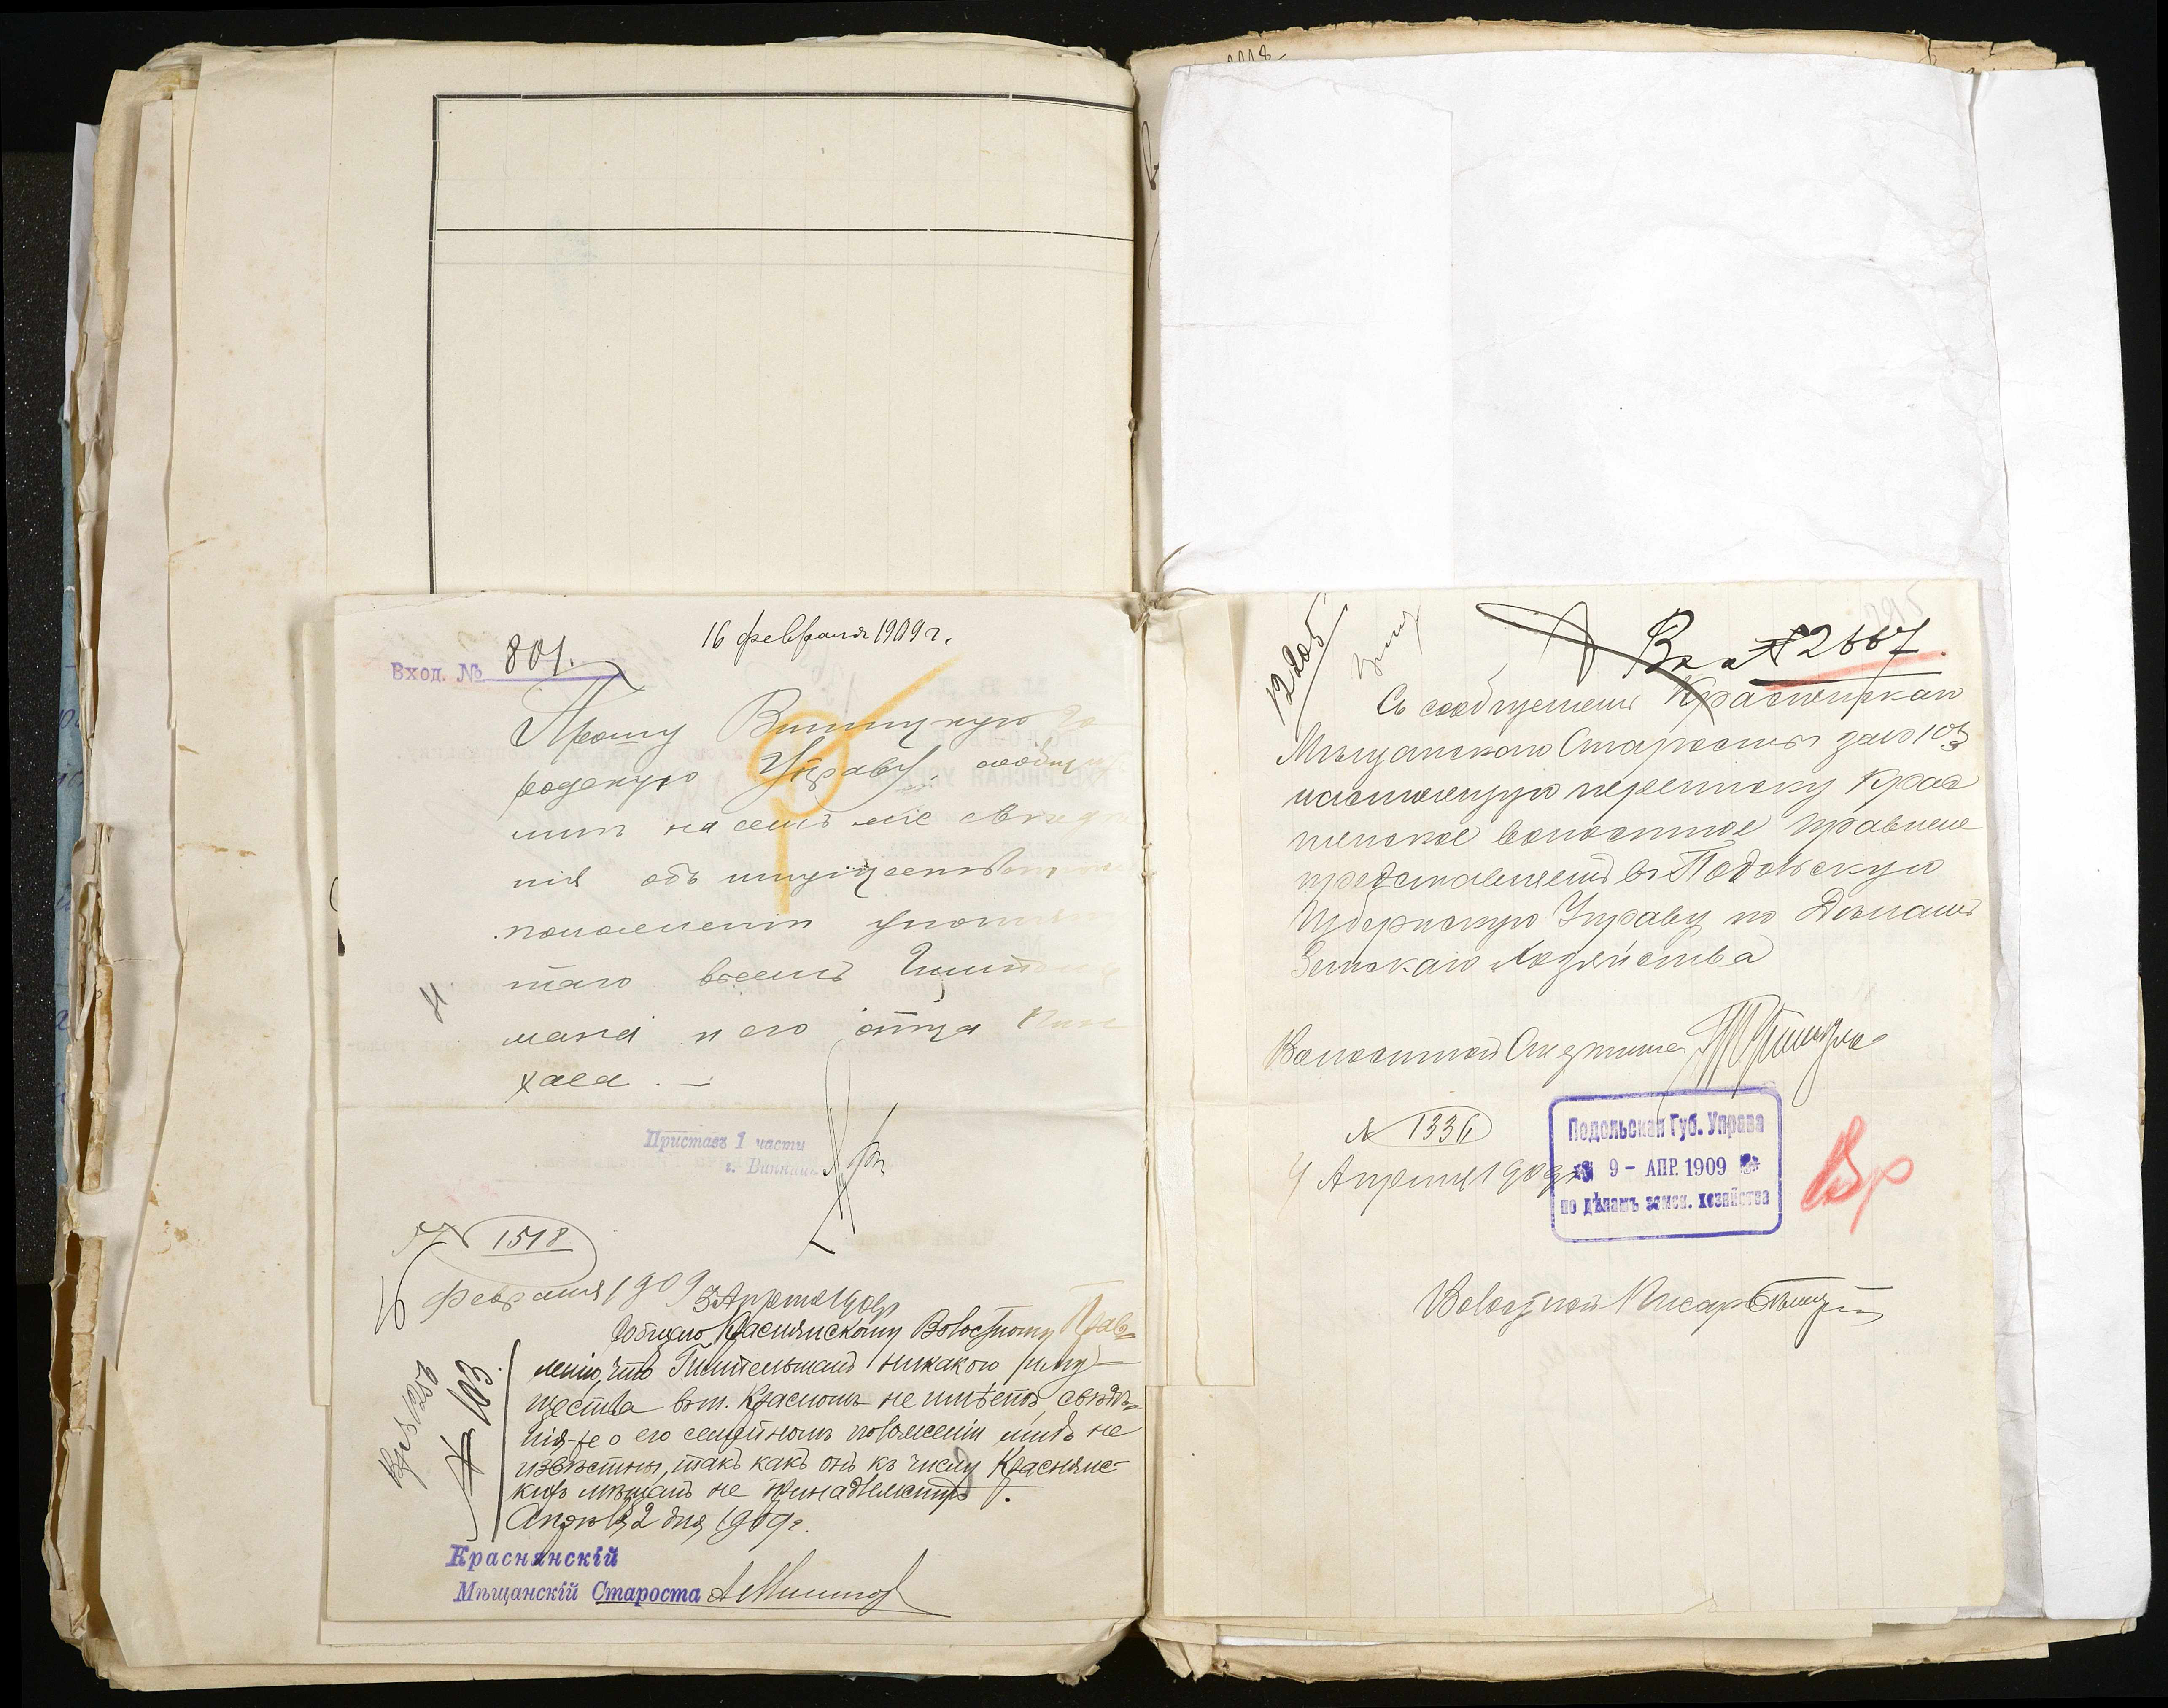 16 февраля 1909 г.
Вход. № 801.
Прошу Винницкую Го
родскую Управу, сообщ
мнѣ на семъ же свѣдѣ
нія объ имущественном
положеніи упомяну
таго въ семъ Гительс
мана и его отца Пин
хаса. —
Приставъ 1 части
г. Винницы
№ 1518
16 февраля 1909
3 Апрѣля 1909 г.
Сообщаю Краснянскому Волостному Прав-
ленію, что Гительманъ никакого иму-
щества въ м. Красномъ не имѣетъ, свѣдѣ-
нія-же о его семейномъ положеніи мнѣ не
извѣстны, такъ какъ онъ къ числу Краснянс-
кихъ мѣщанъ не принадлежитъ.
Апрѣля 2 дня 1909 г.
№ 103.
Краснянскій
Мѣщанскій Староста
Вх № 2667.
Съ сообщеніемъ Краснянскаго
Мѣщанскаго Старосты за № 103
настоящую переписку Крас
нянское волостное правлене
представляетъ въ Подольскую
Губернскую Управу по Дѣламъ
Земскаго Хозяйства
Волостной Старшина
№ 1336
4 Апрѣля 1909 г.
Подольская Губ. Управа
9 - АПР. 1909
по дѣламъ земск. хозяйства
Вр
Волостной Писарь